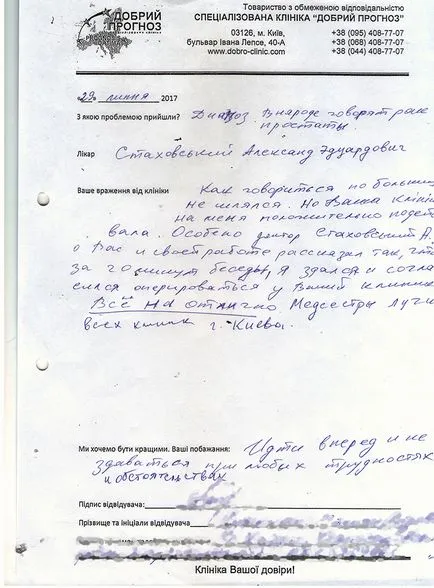 ДОБРИЙ
ПРОГНОЗ
Товариство з обмеженою відповідальністю
СПЕЦІАЛІЗОВАНА КЛІНІКА "ДОБРИЙ ПРОГНОЗ"
03126, м. Київ, +38 (095) 408-77-07
бульвар Івана Лепсе, 40-А +38 (068) 408-77-07
www.dobro-clinic.com +38 (044) 408-77-07
29 липня 2017
З якою проблемою прийшли? Диагноз. В народе говорят рак
простаты.
Лікар Стаховський Александ Эдуардович
Ваше враження від клініки Как говориться по больниц
не шлялся. Но Ваша клини
на меня положительно подей
вала. Особено доктор Стаховський А.
о Вас и своей работе рассказал так, что
за 20 минут беседы, я здался и согла
сился оперироваться у Вашей клинике
Всё на отлично Медсестры Лучш
всех клиник г. Києва.
Ми хочемо бути кращими. Ваші побажання: Идти вперед и не
здаваться при любых трудностях
и обстоятельствах
Підпис відвідувача:
Прізвище та ініціали відвідувача
Клініка Вашої довіри!